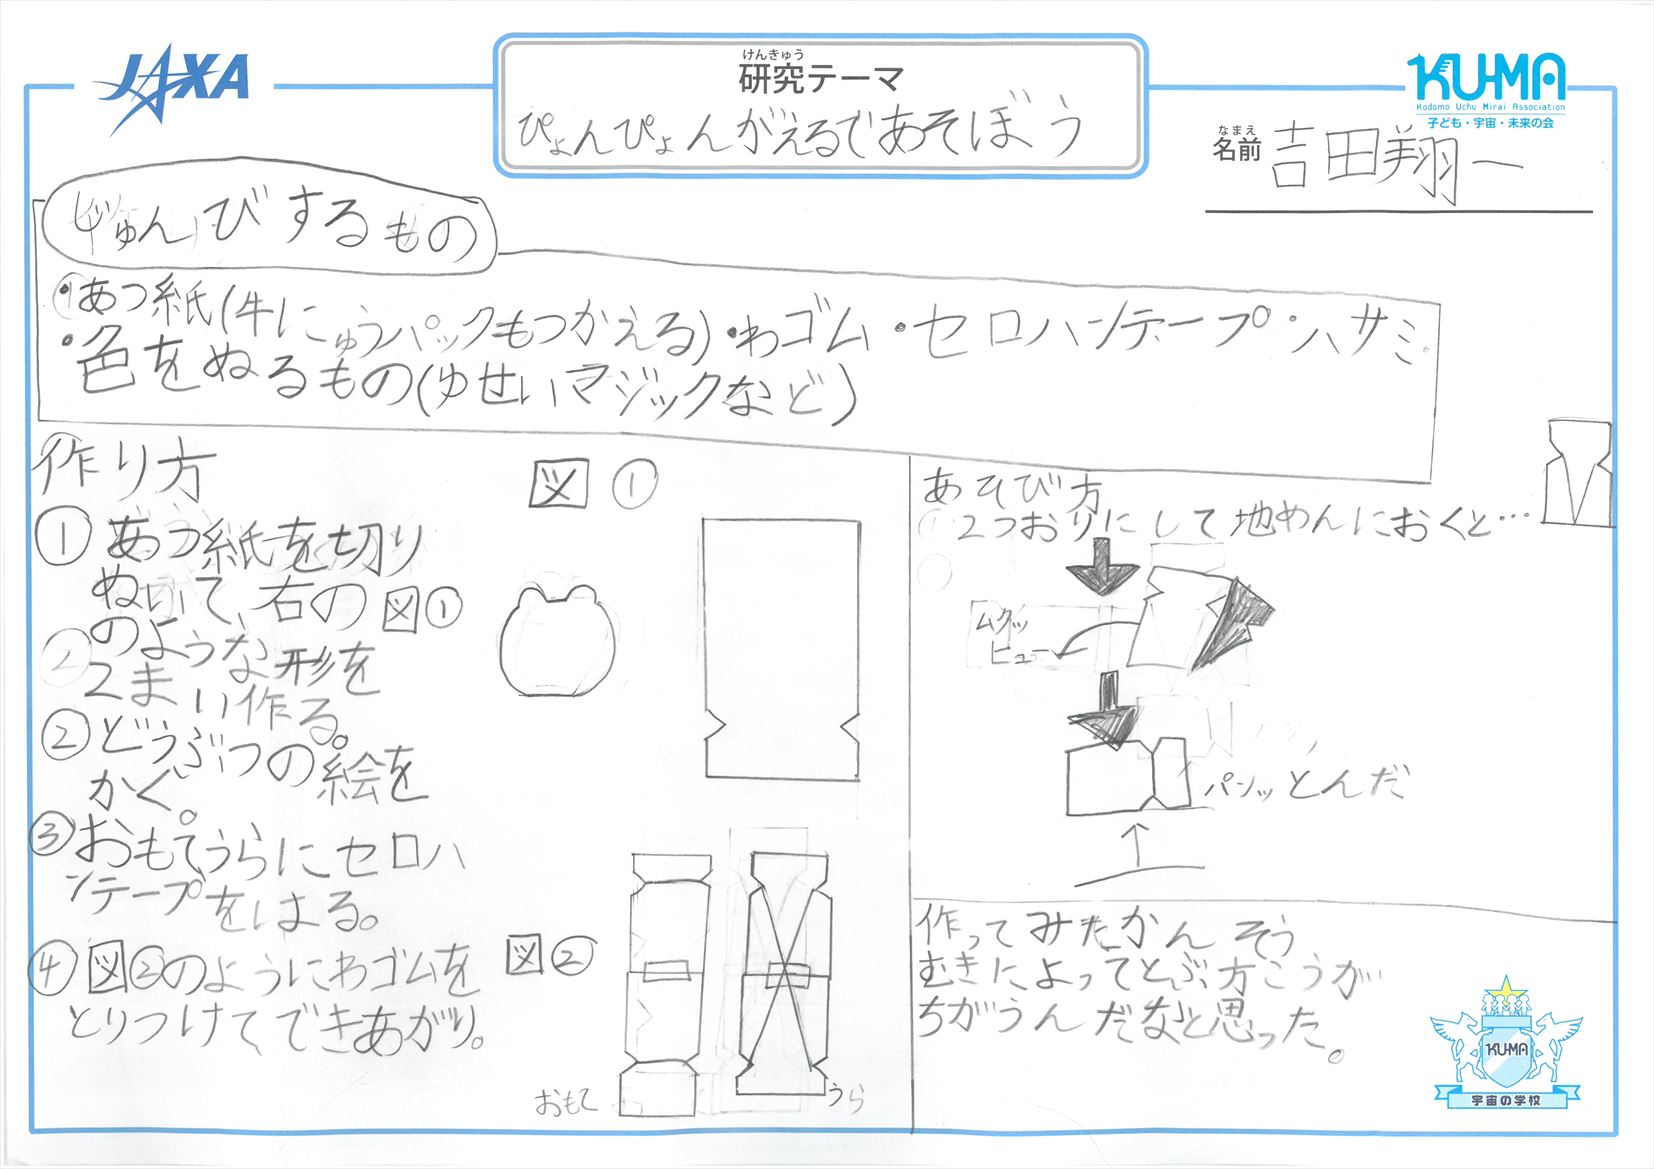 JAXA
けんきゅう
研究テーマ
ぴょんぴょんがえるであそぼう
KU-MA
Kodomo Uchu Mirai Association
子ども・宇宙・未来の会
なまえ
名前 吉田翔一
じゅんびするもの
・あつ紙(牛にゅうパックもつかえる)・わゴム・セロハンテープ・ハサミ
・色をぬるもの(ゆせいマジックなど)
作り方
① あつ紙を切り
ぬいて、右の図①
のような形を
2まい作る。
② どうぶつの絵を
かく。
③ おもてうらにセロハ
ンテープをはる。
④ 図②のようにわゴムを
とりつけてできあがり。
図①
図②
おもて
うら
あそび方
2つおりにして地めんにおくと…
ムクッ
ピュー
パンッとんだ
作ってみたかんそう
むきによってとぶ方こうが
ちがうんだなと思った。
KUMA
宇宙の学校